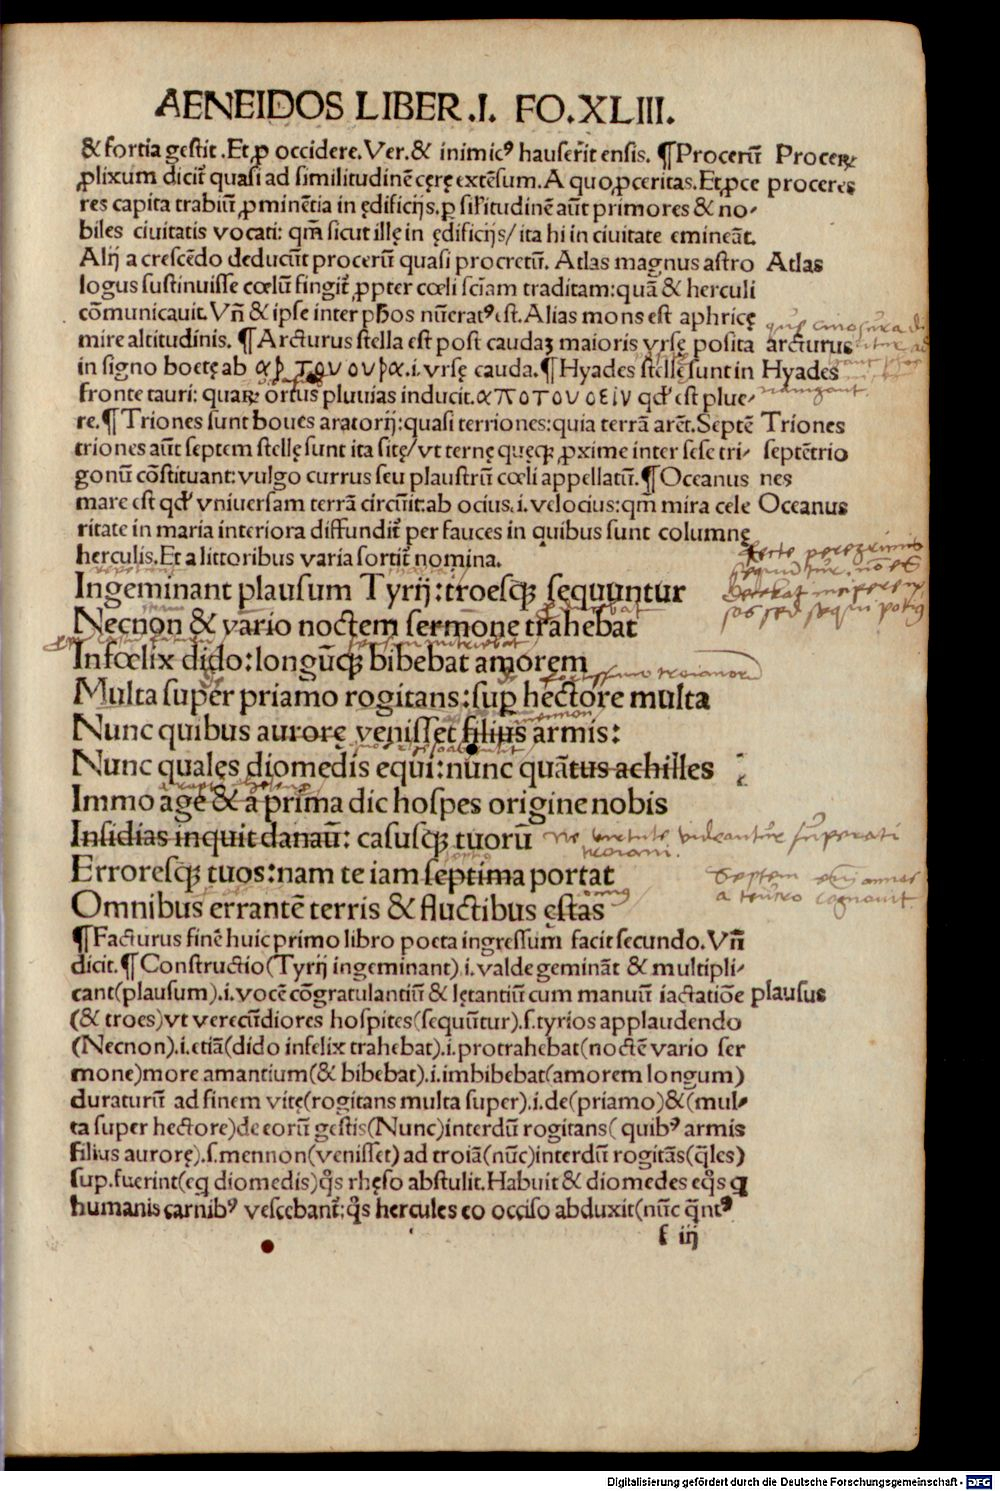 AENEIDOS LIBER .I. FO.XLIII.
& fortia gestit .Et ꝓ occidere.Ver.& inimicꝰ hauserit ensis. ¶Procerū Proceꝝ
ꝓlixum dicit̄ quasi ad similitudinē cęrę extēsum.A quo,ꝓceritas.Et,ꝓce proceres
res capita trabiū,ꝓminētia in ędificijs.ꝑ sil'itudinē aūt primores & no⸗
biles ciuitatis vocati: qm̄ sicut illę in ędificijs/ ita hi in ciuitate emineāt.
Alij a crescēdo deducūt procerū quasi procretū. Atlas magnus astro Atlas
logus sustinuisse cœlū fingit̄ ꝓpter cœli sciam traditam:quā & herculi
cōmunicauit.Vn̄ & ipse inter phos nūeratꝰ est.Alias mons est aphricę
mire altitudinis. ¶Arcturus stella est post caudaꝫ maioris vrsę posita arcturus
in signo boetę ab αρ τουουρα.i.vrsę cauda.¶Hyades stellę sunt in Hyades
fronte tauri: quaꝝ ortus pluuias inducit.αποτουοειν qd' est plue⸗
re.¶Triones sunt boues aratorij:quasi terriones:quia terrā arēt.Septē Triones
triones aūt septem stellę sunt ita sitę/vt ternę quęqꝫ ꝓxime inter sese tri⸗ septētrio
gonū cōstituant:vulgo currus seu plaustrū cœli appellatū.¶Oceanus nes
mare est qd' vniuersam terrā circūit:ab ocius.i.velocius:qm̄ mira cele Oceanus
ritate in maria interiora diffundit̄ per fauces in quibus sunt columnę
herculis.Et a littoribus varia sortit̄ nomina.
recte peregrinis
Ingeminant plausum Tyrij:troesqꝫ sequuntur
Necnon & vario noctem sermone trahebat
sos sed sequi potius
Infœlix dido:longūqꝫ bibebat amorem
Multa super priamo rogitans:suꝑ hectore multa
Nunc quibus aurorę venisset filius armis:
Nunc quales diomedis equi:nunc quātus achilles
Immo age & a prima dic hospes origine nobis
Insidias inquit danaū: casusqꝫ tuorū ne virtute videantur superati
troiani.
Erroresqꝫ tuos:nam te iam septima portat
Omnibus errantē terris & fluctibus ęstas
¶Facturus finē huic primo libro poeta ingressum facit secundo.Vn̄
dicit.¶Constructio(Tyrij ingeminant).i.valde gemināt & multipli⸗
cant(plausum).i.vocē cōgratulantiū & lętantiū cum manuū iactatiōe plausus
(& troes)vt verecūdiores hospites(sequūtur).s.tyrios applaudendo
(Necnon).i.etiā(dido infelix trahebat).i.protrahebat(noctē vario ser
mone)more amantium(& bibebat).i.imbibebat(amorem longum)
duraturū ad finem vitę(rogitans multa super).i.de(priamo)&(mul⸗
ta super hectore)de eorū gestis(Nunc)interdū rogitans( quibꝰ armis
filius aurorę).s.mennon(venisset) ad troiā(nūc)interdū rogitās(q̄les)
sup.fuerint(eq diomedis)q̄s rhęso abstulit.Habuit & diomedes eq̄s q
humanis carnibꝰ vescebant̄:q̄s hercules eo occiso abduxit(nūc q̄ntꝰ
f iij
Digitalisierung gefördert durch die Deutsche Forschungsgemeinschaft - DFG